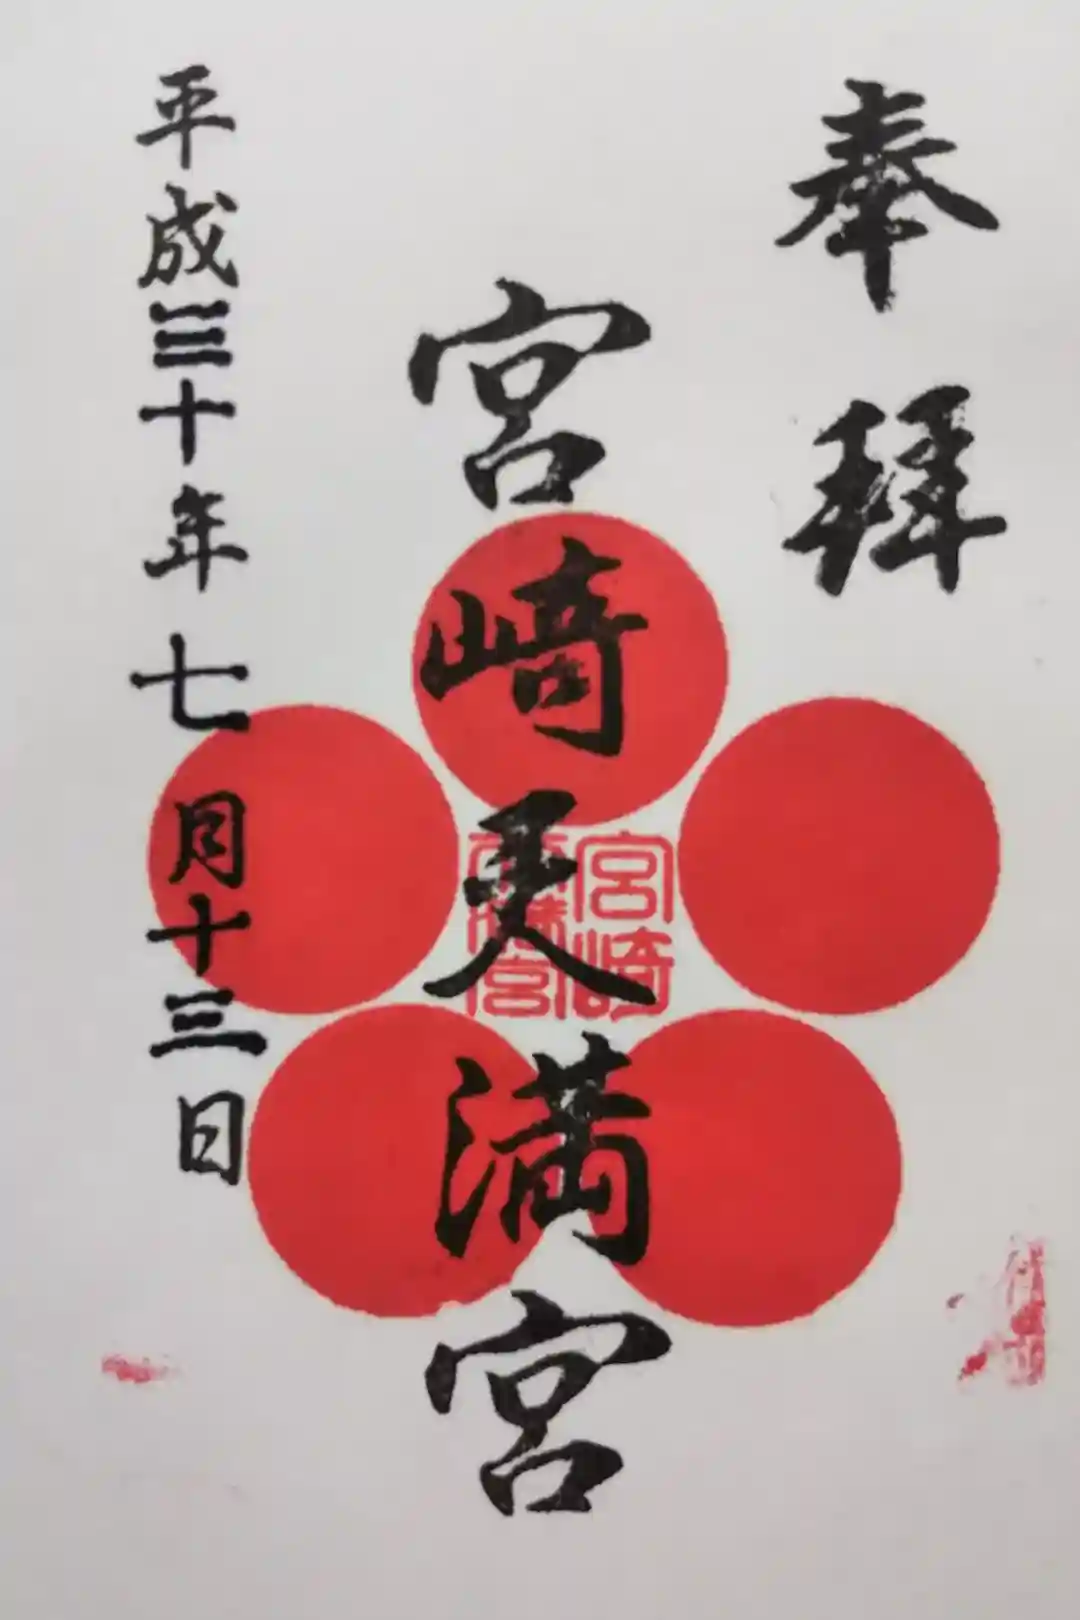 奉拜
宮崎天満宮
宮崎
天満宮
平成三十年七月十三日